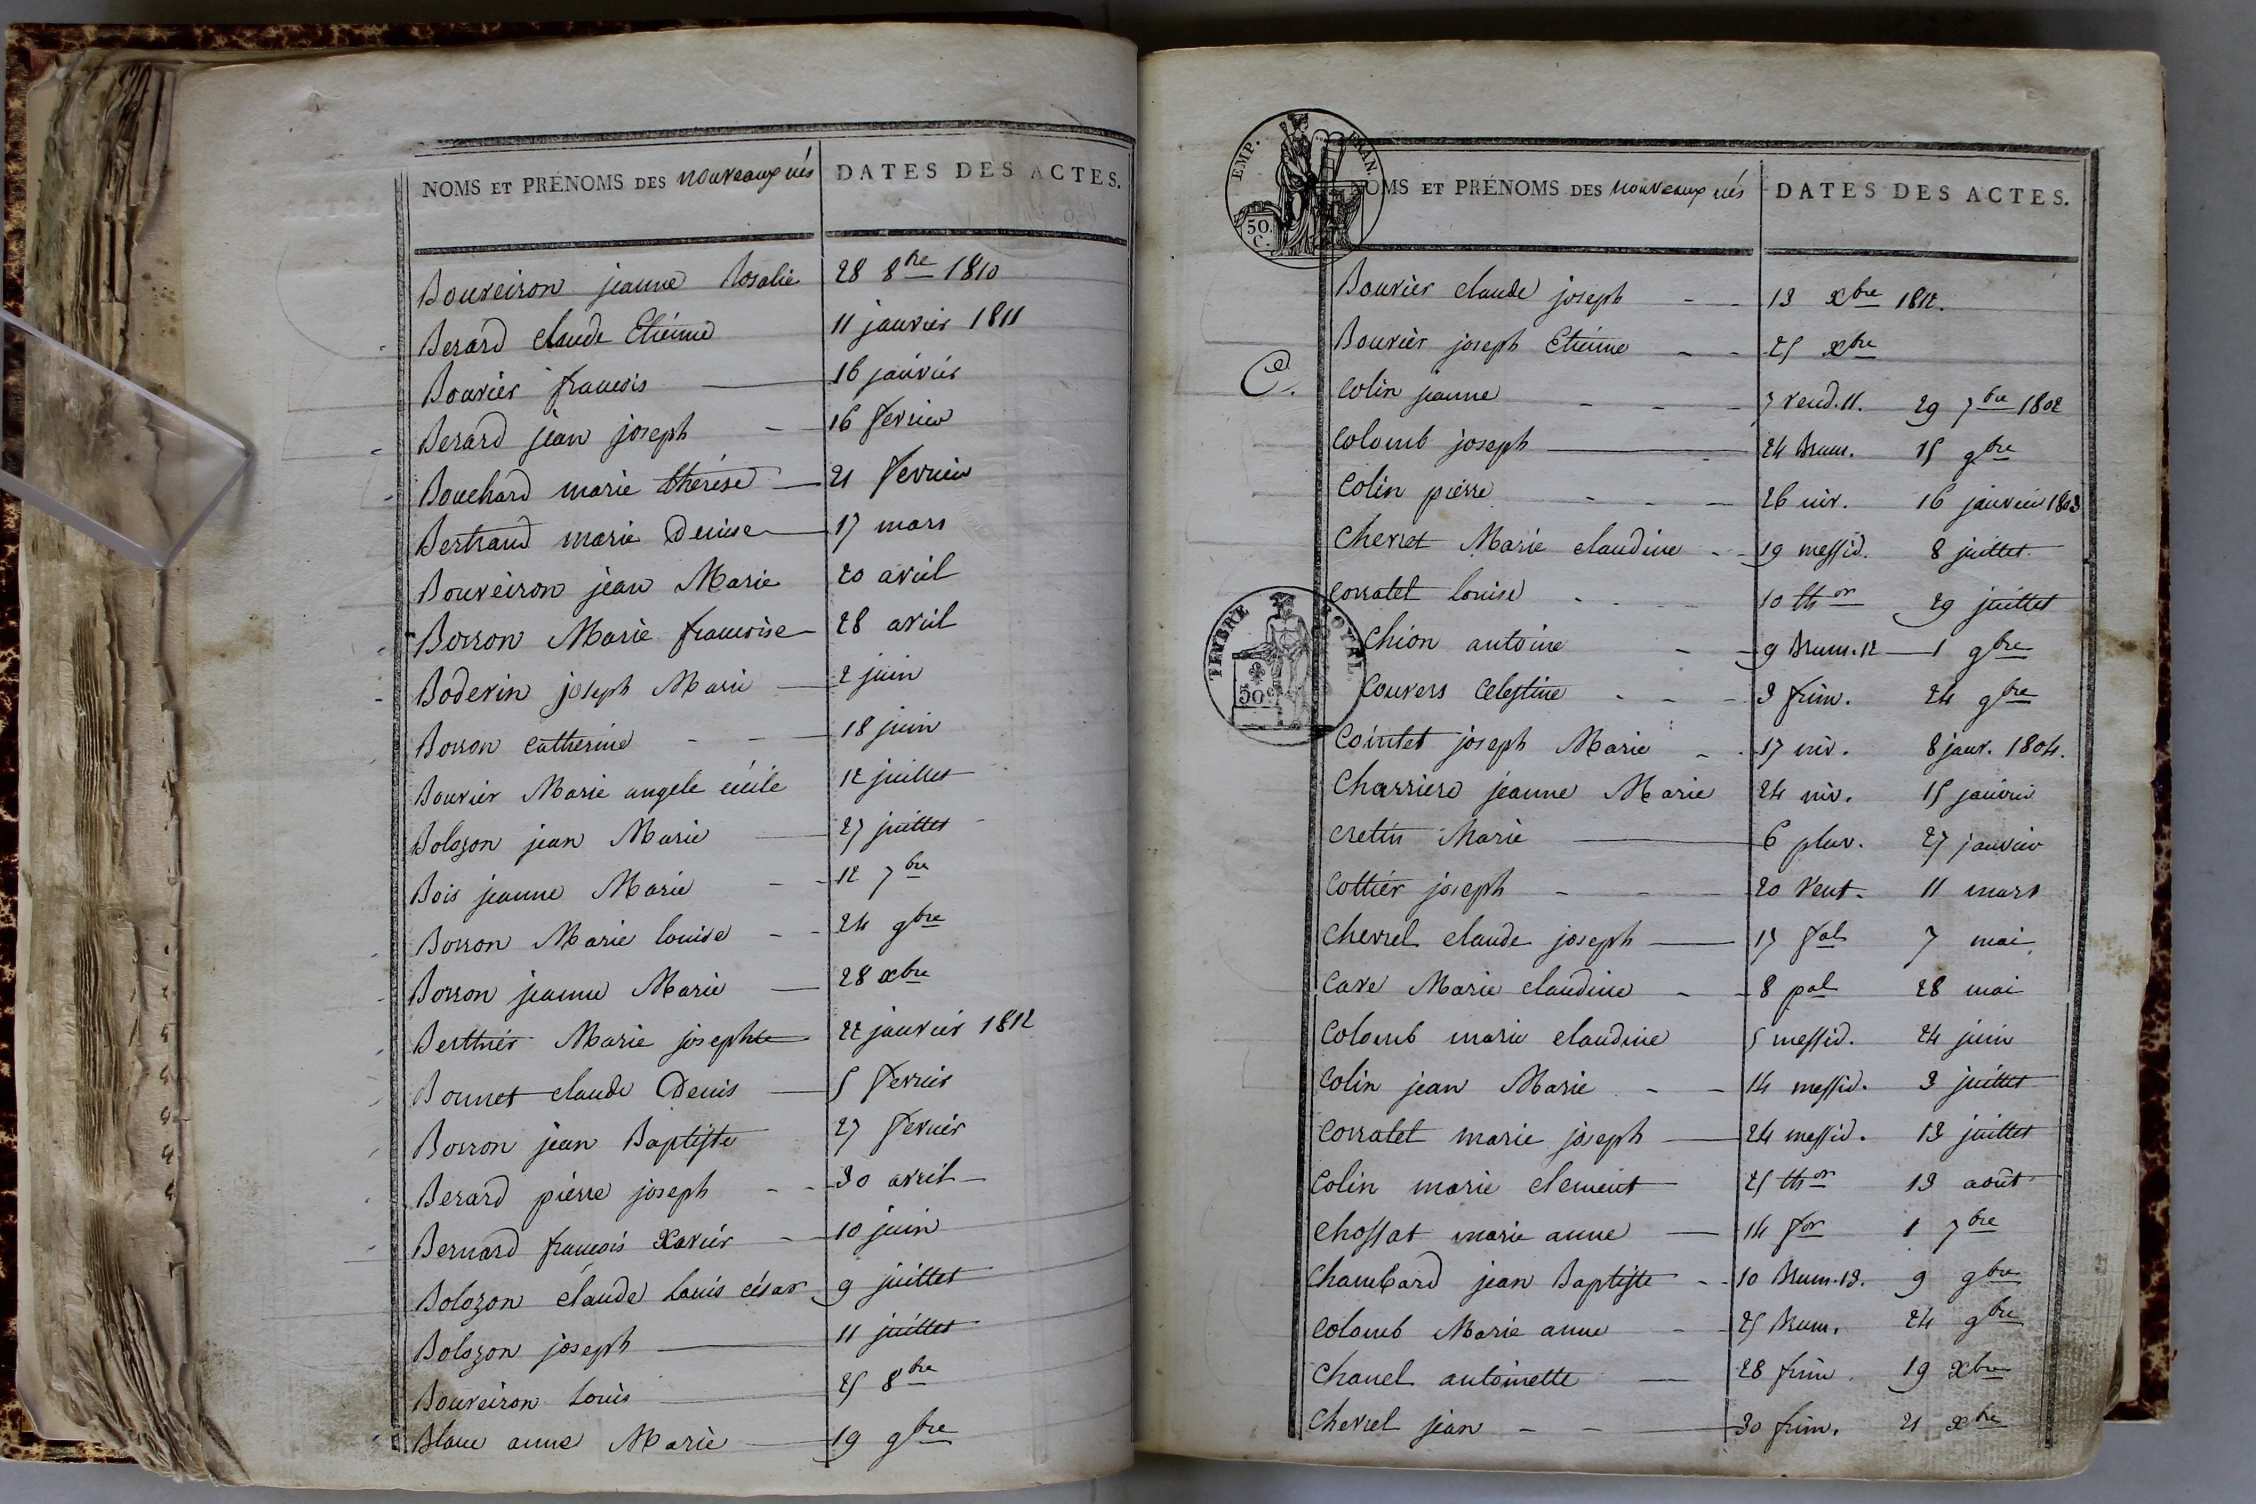 NOMS ET PRÉNOMS DES nouveaux nés DATES DES ACTES.
Bouveiron jeanne Rosalie 28 8bre 1810
Berard claude Etiénne 11 janvier 1811
Bouvier françois 16 janvier
Berard jean joseph 16 fevrier
Bouchard marie thérése 21 fevrier
Bertrand marie Denise 17 mars
Bouveiron jean Marie 20 avril
Borron Marie françoise 28 avril
Boderin joseph Marie 2 juin
Borron catherine 18 juin
Bouvier Marie angele cécile 12 juillet
Bolozon jean Marie 27 juillet
Bois jeanne Marie 12 7bre
Borron Marie louise 24 9bre
Borron jeanne Marie 28 xbre
Berthier Marie josephte 22 janvier 1812
Bonnet claude Denis 5 fevrier
Borron jean Baptiste 27 fevrier
Berard piérre joseph 30 avril
Bernard françois xavier 10 juin
Bolozon claude Louis césar 9 juillet
Bolozon joseph 11 juillet
Bouveiron Louis 25 8bre
Blanc anne Marie 19 9bre
EMP. FRAN.
50. C.
NOMS ET PRÉNOMS DES nouveaux nés DATES DES ACTES.
Bouvier claude joseph 13 xbre 1812.
Bouvier joseph Etiénne 25 xbre
C.
Colin jeanne 7 vend. 11. 29 7bre 1802
Colomb joseph 24 Brum. 15 9bre
Colin piérre 26 niv. 16 janvier 1803
Chevret Marie claudine 19 messid. 8 juillet
Corratet louise 10 thor 29 juillet
TIMBRE ROYAL
50c
Chion antoine 9 Brum. 12 1 9bre
Couvers Celestine 3 frim. 24 9bre
Cointet joseph Marie 17 niv. 8 janv. 1804.
Charriere jeanne Marie 24 niv. 15 janvier
Cretin Marie 6 pluv. 27 janvier
Cottier joseph 20 vent. 11 mars
Chevrel claude joseph 17 fal 7 mai
Cave Marie claudine 8 pal 28 mai
Colomb marie claudine 5 messid. 24 juin
Colin jean Marie 14 messid. 3 juillet
Corratet marie joseph 24 messid. 13 juillet
Colin marie clement 25 thor 13 août
Chossat marie anne 14 for 1 7bre
Chambard jean Baptiste 10 Brum. 13. 9 9bre
Colomb Marie anne 25 Brum. 24 9bre
Chanel antoinette 28 frim. 19 xbre
Chevrel jean 30 frim. 21 xbre